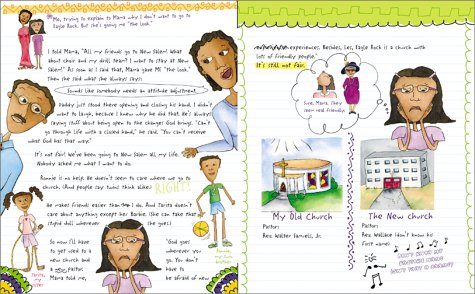 Me, trying to explain to Mama why I don't want to go to
Eagle Rock. But she's giving me "the look."
I told Mama, "All my friends go to New Salem! What
about choir and my drill team? I want to stay at New
Salem!" As soon as I said that, Mama gave ME "the look."
Then she said what she always says:
Sounds like somebody needs an attitude adjustment.
Daddy just stood there opening and closing his hand. I didn't
want to laugh, because I knew why he did that. He's always
saying stuff about being open to the changes God brings. "Can't
go through life with a closed hand," he said. "You can't receive
what God has that way."
It's not fair! We've been going to New Salem all my life.
Nobody asked me what I want to do.
Ronnie is no help. He doesn't seem to care where we go to
church. (And people say twins think alike.) RIGHT!
He makes friends easier than I do. And Tarita doesn't
care about anything except her Barbies. (She can take that
stupid doll wherever she goes.)
So now I'll have
to get used to a
new church and
a new pastor.
Mama told me,
"God goes
wherever you
go. You don't
have to
be afraid of new
Tarita, my sister
experiences. Besides, Les, Eagle Rock is a church with
lots of friendly people."
It's still not fair.
Sure, Mama. They
seem real friendly.
My Old Church
Pastor:
Rev. Walter Samuels, Jr.
The New Church
Pastor:
Rev. Wallace (don't know his
first name)